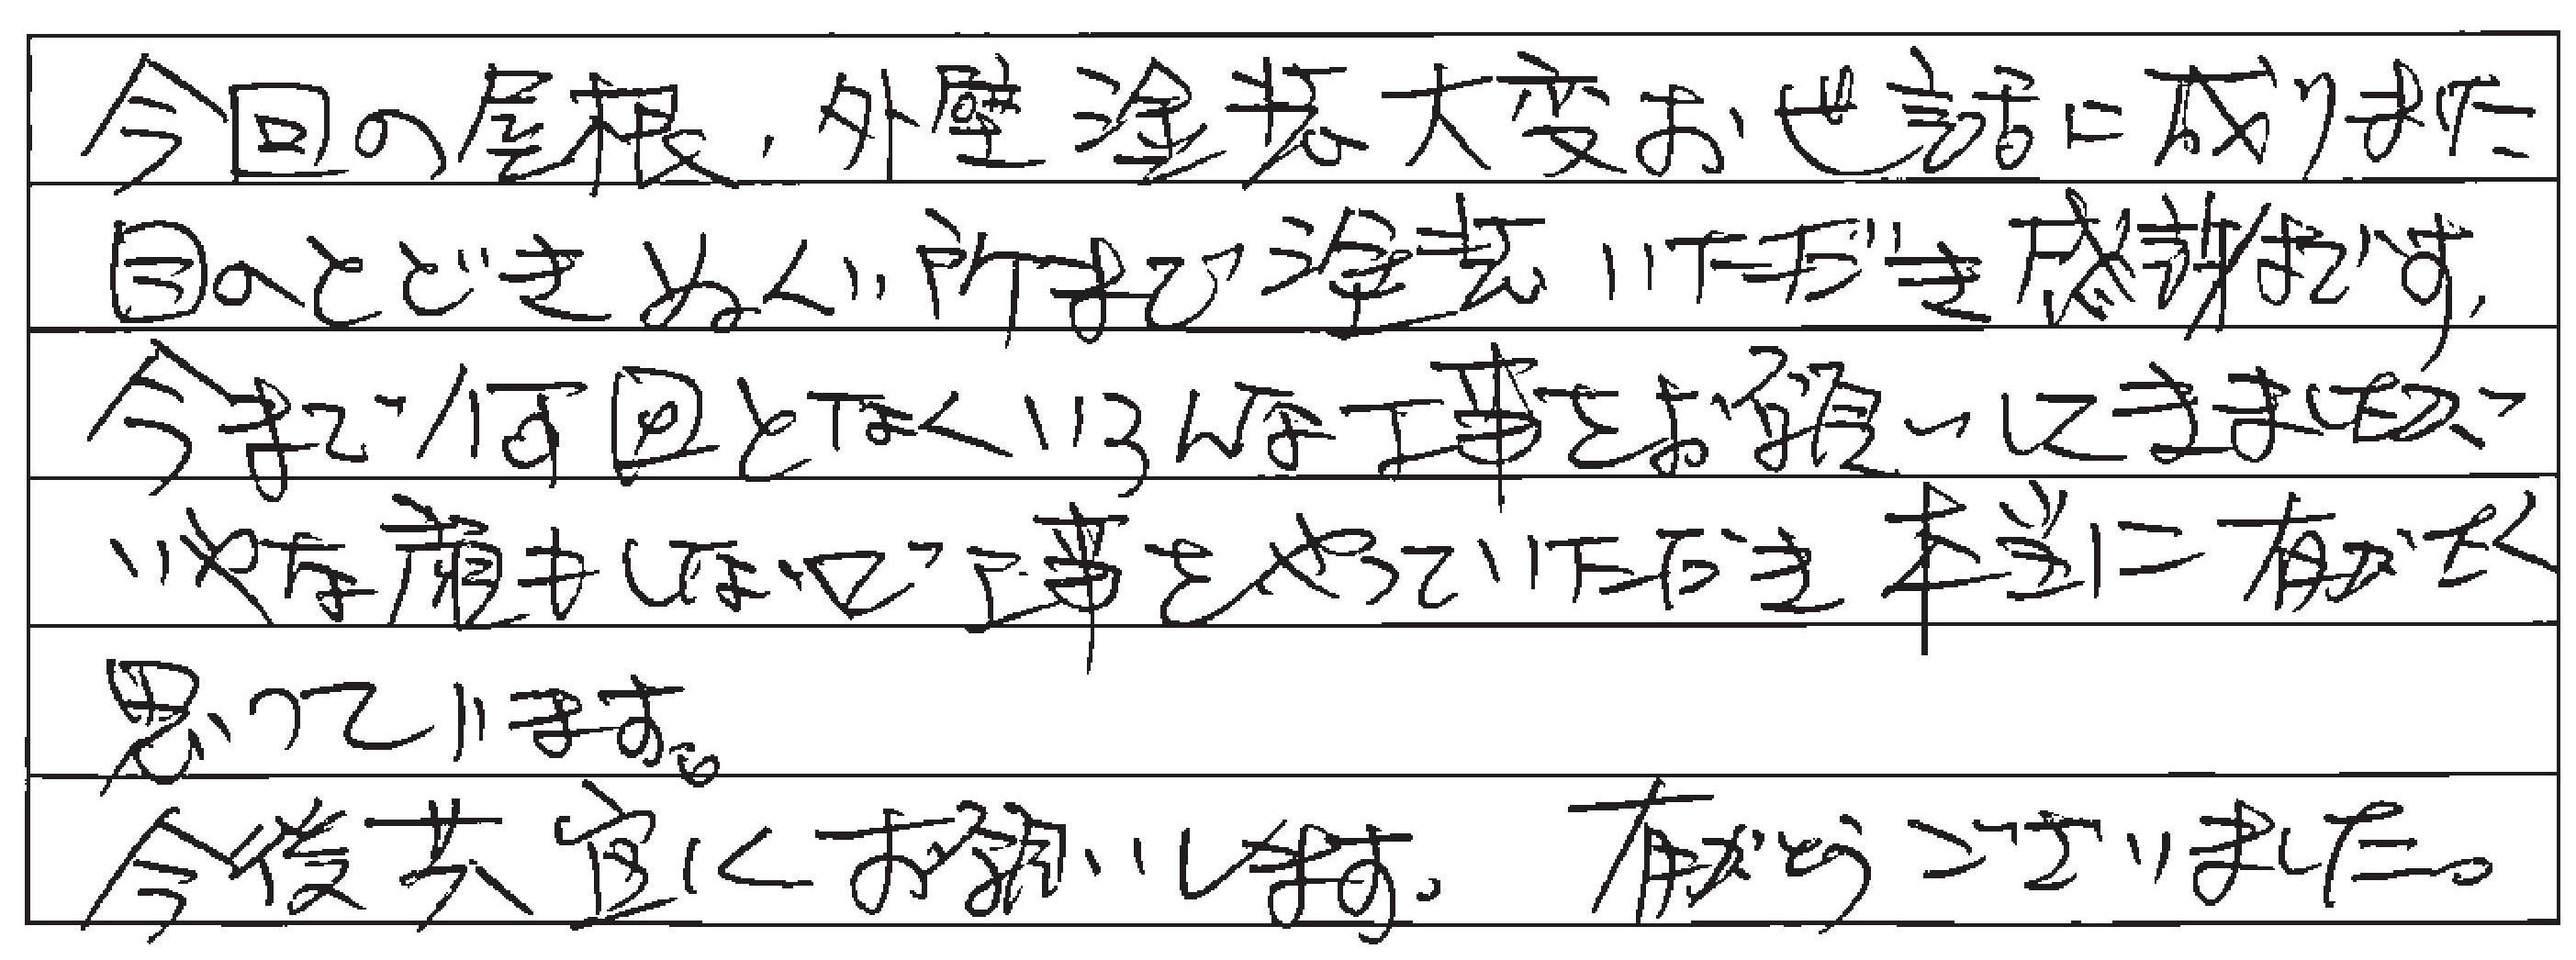 今回の屋根、外壁塗装大変お世話に成りました
目のとどきぬくい所まで塗装いただき感謝まです。
今まで何回となくいろんな工事をお願いしてきましたが
いやな顔もしないで工事をやっていただき本当に有がたく
思っています。
今後共宜しくお願いします。 有がとうございました。